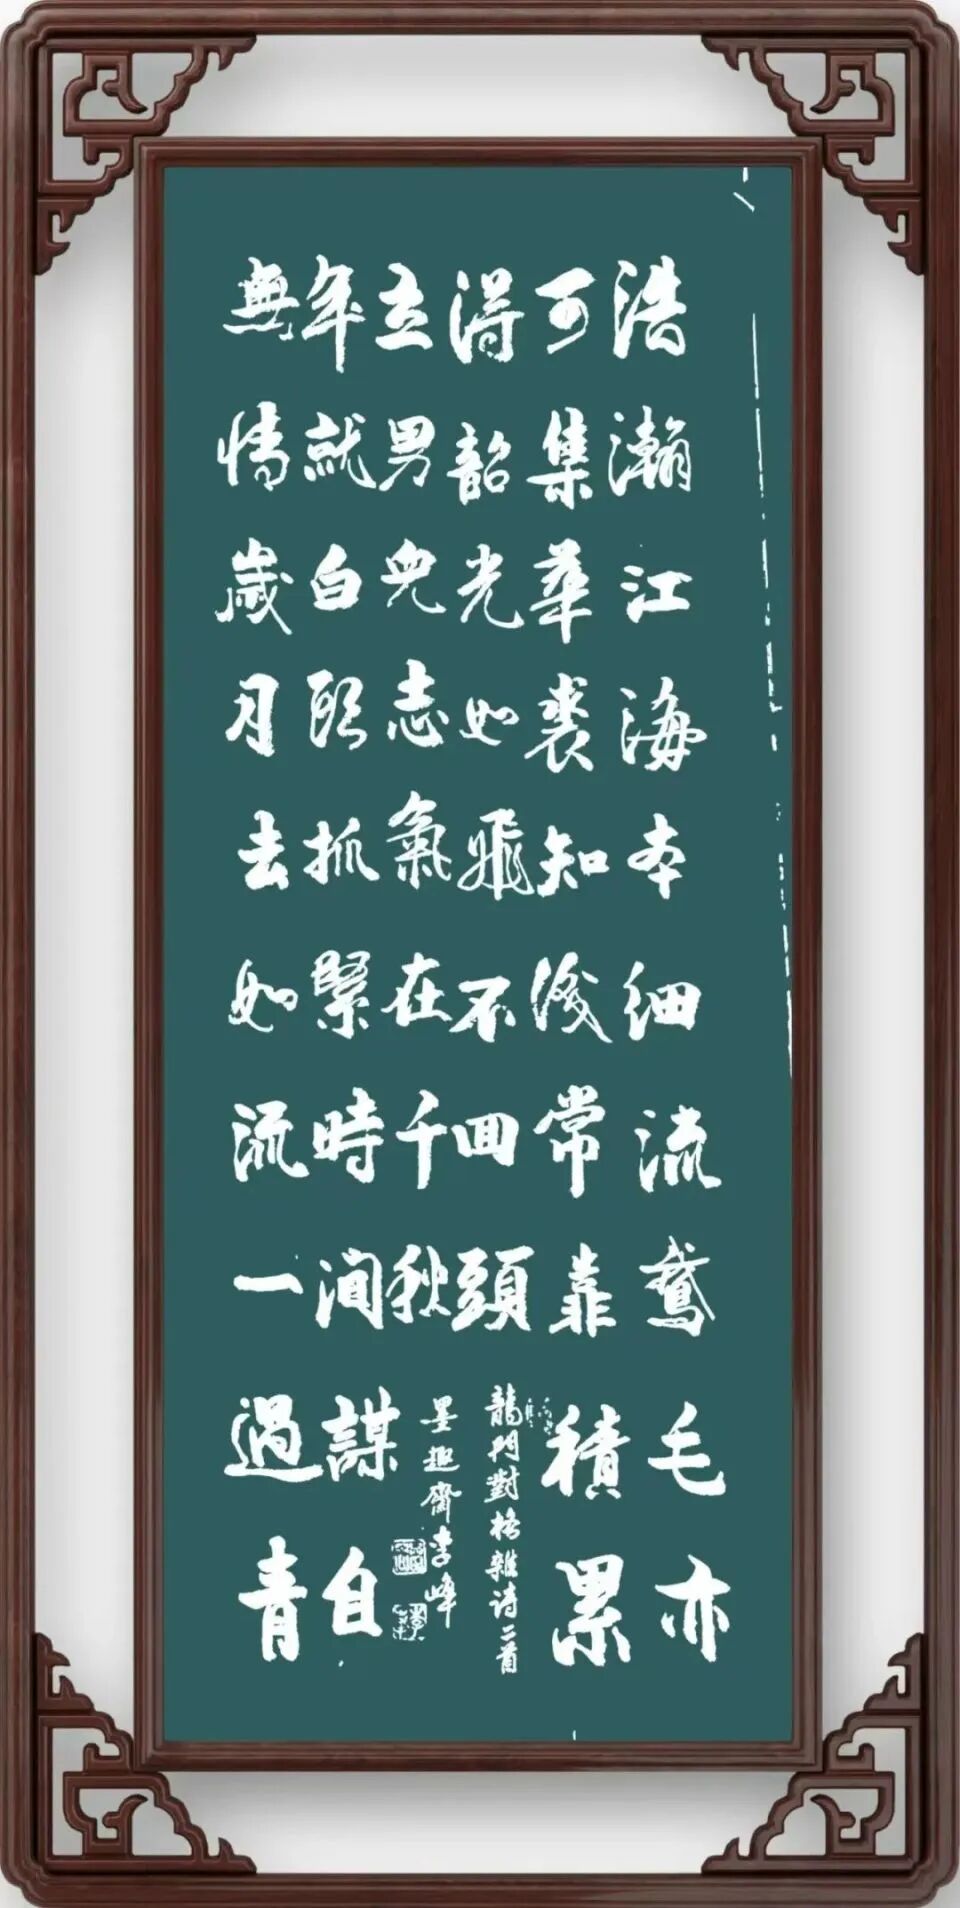 浩瀚江海本细流鵞毛亦
可集華裘知淺常靠積累
得韶光如飛不囬頭
龍門對格雜诗二首
無情歲月去如流一過青
年就白頭抓緊時間謀自
立男兒志氣在千秋
墨趣齋李峰